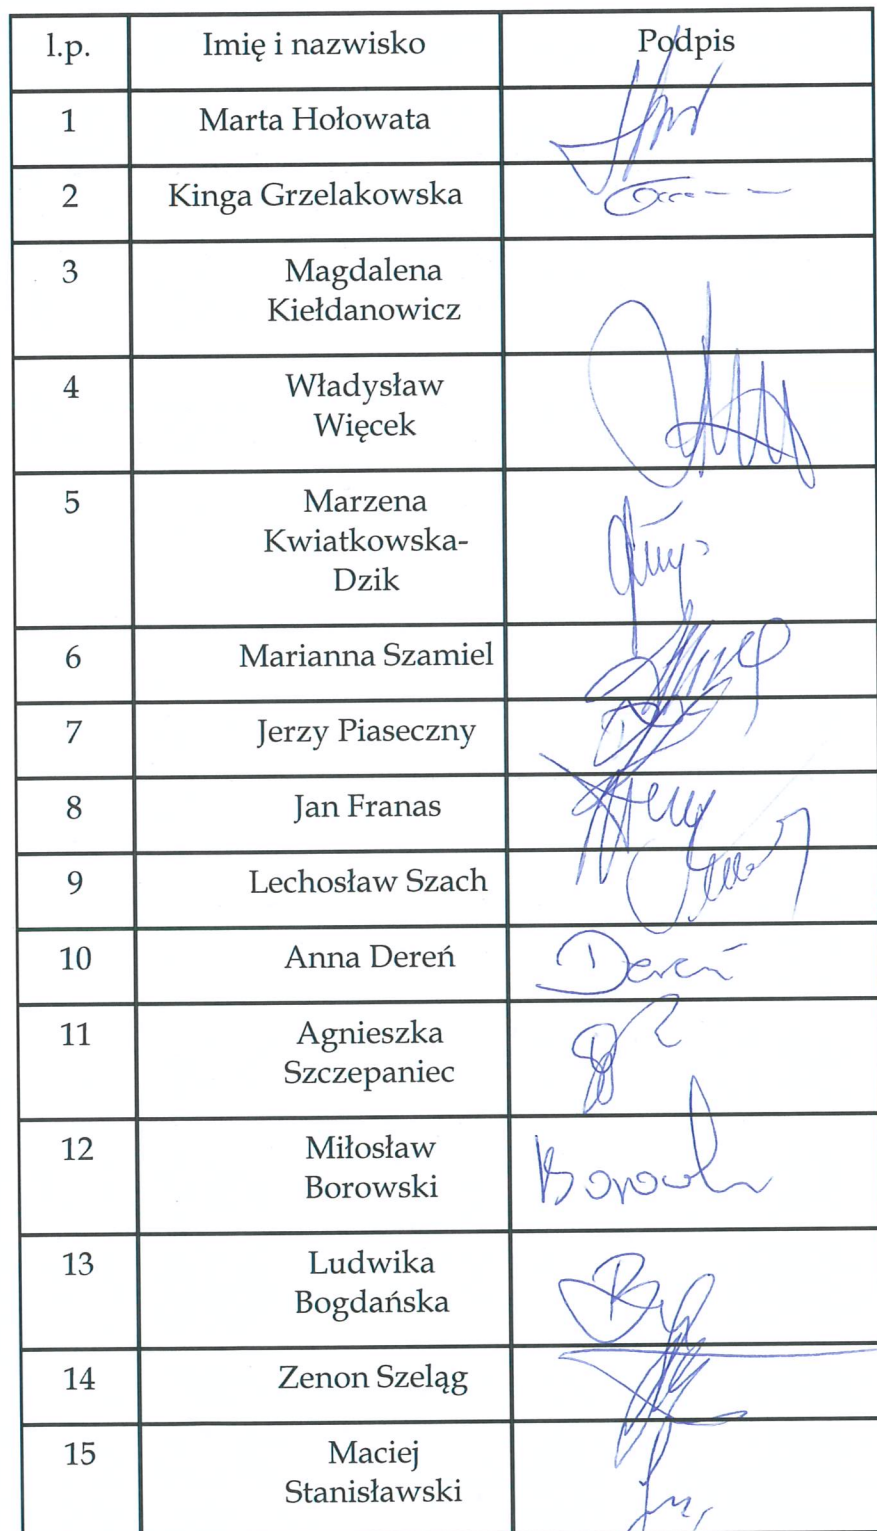 l.p. Imię i nazwisko Podpis
1 Marta Hołowata
2 Kinga Grzelakowska
3 Magdalena
Kiełdanowicz
4 Władysław
Więcek
5 Marzena
Kwiatkowska-
Dzik
6 Marianna Szamiel
7 Jerzy Piaseczny
8 Jan Franas
9 Lechosław Szach
10 Anna Dereń Dereń
11 Agnieszka
Szczepaniec
12 Miłosław
Borowski
13 Ludwika
Bogdańska
14 Zenon Szeląg
15 Maciej
Stanisławski